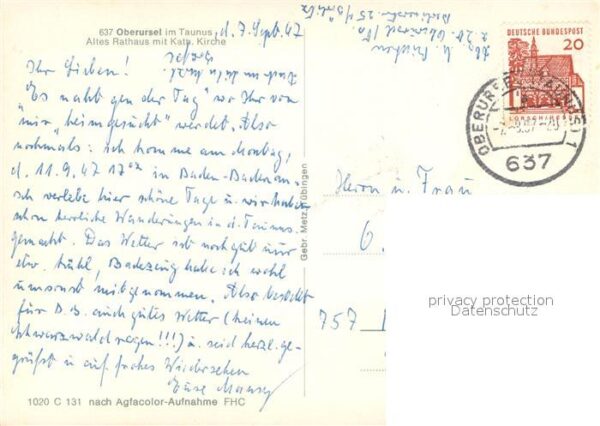 637 Oberursel im Taunus
Altes Rathaus mit Kath. Kirche
d. 7. Sept. 67
Ihr Lieben!
"Es naht gen der Tag" wo Ihr von
mir "heimgesucht" werdet. Also
nochmals: ich komme am Montag,
d. 11.9.67 17⁰² in Baden-Baden an.
Ich verlebe hier schöne Tage u. wir haben
schon herrliche Wanderungen in d. Taunus
gemacht. Das Wetter ist noch gut nur
etw. kühl, Badezeug habe ich wohl
umsonst mitgenommen. Also bestellt
für B.B. auch gutes Wetter (keinen
Schwarzwaldregen!!!) u. seid herzl. ge-
grüßt u. auf frohes Wiedersehen
Eure
1020 C 131 nach Agfacolor-Aufnahme FHC
Gebr. Metz, Tübingen
DEUTSCHE BUNDESPOST
20
LORSCH/HESSEN
OBERURSEL (TAUNUS) 1
637
Herrn u. Frau
6.
757
privacy protection
Datenschutz